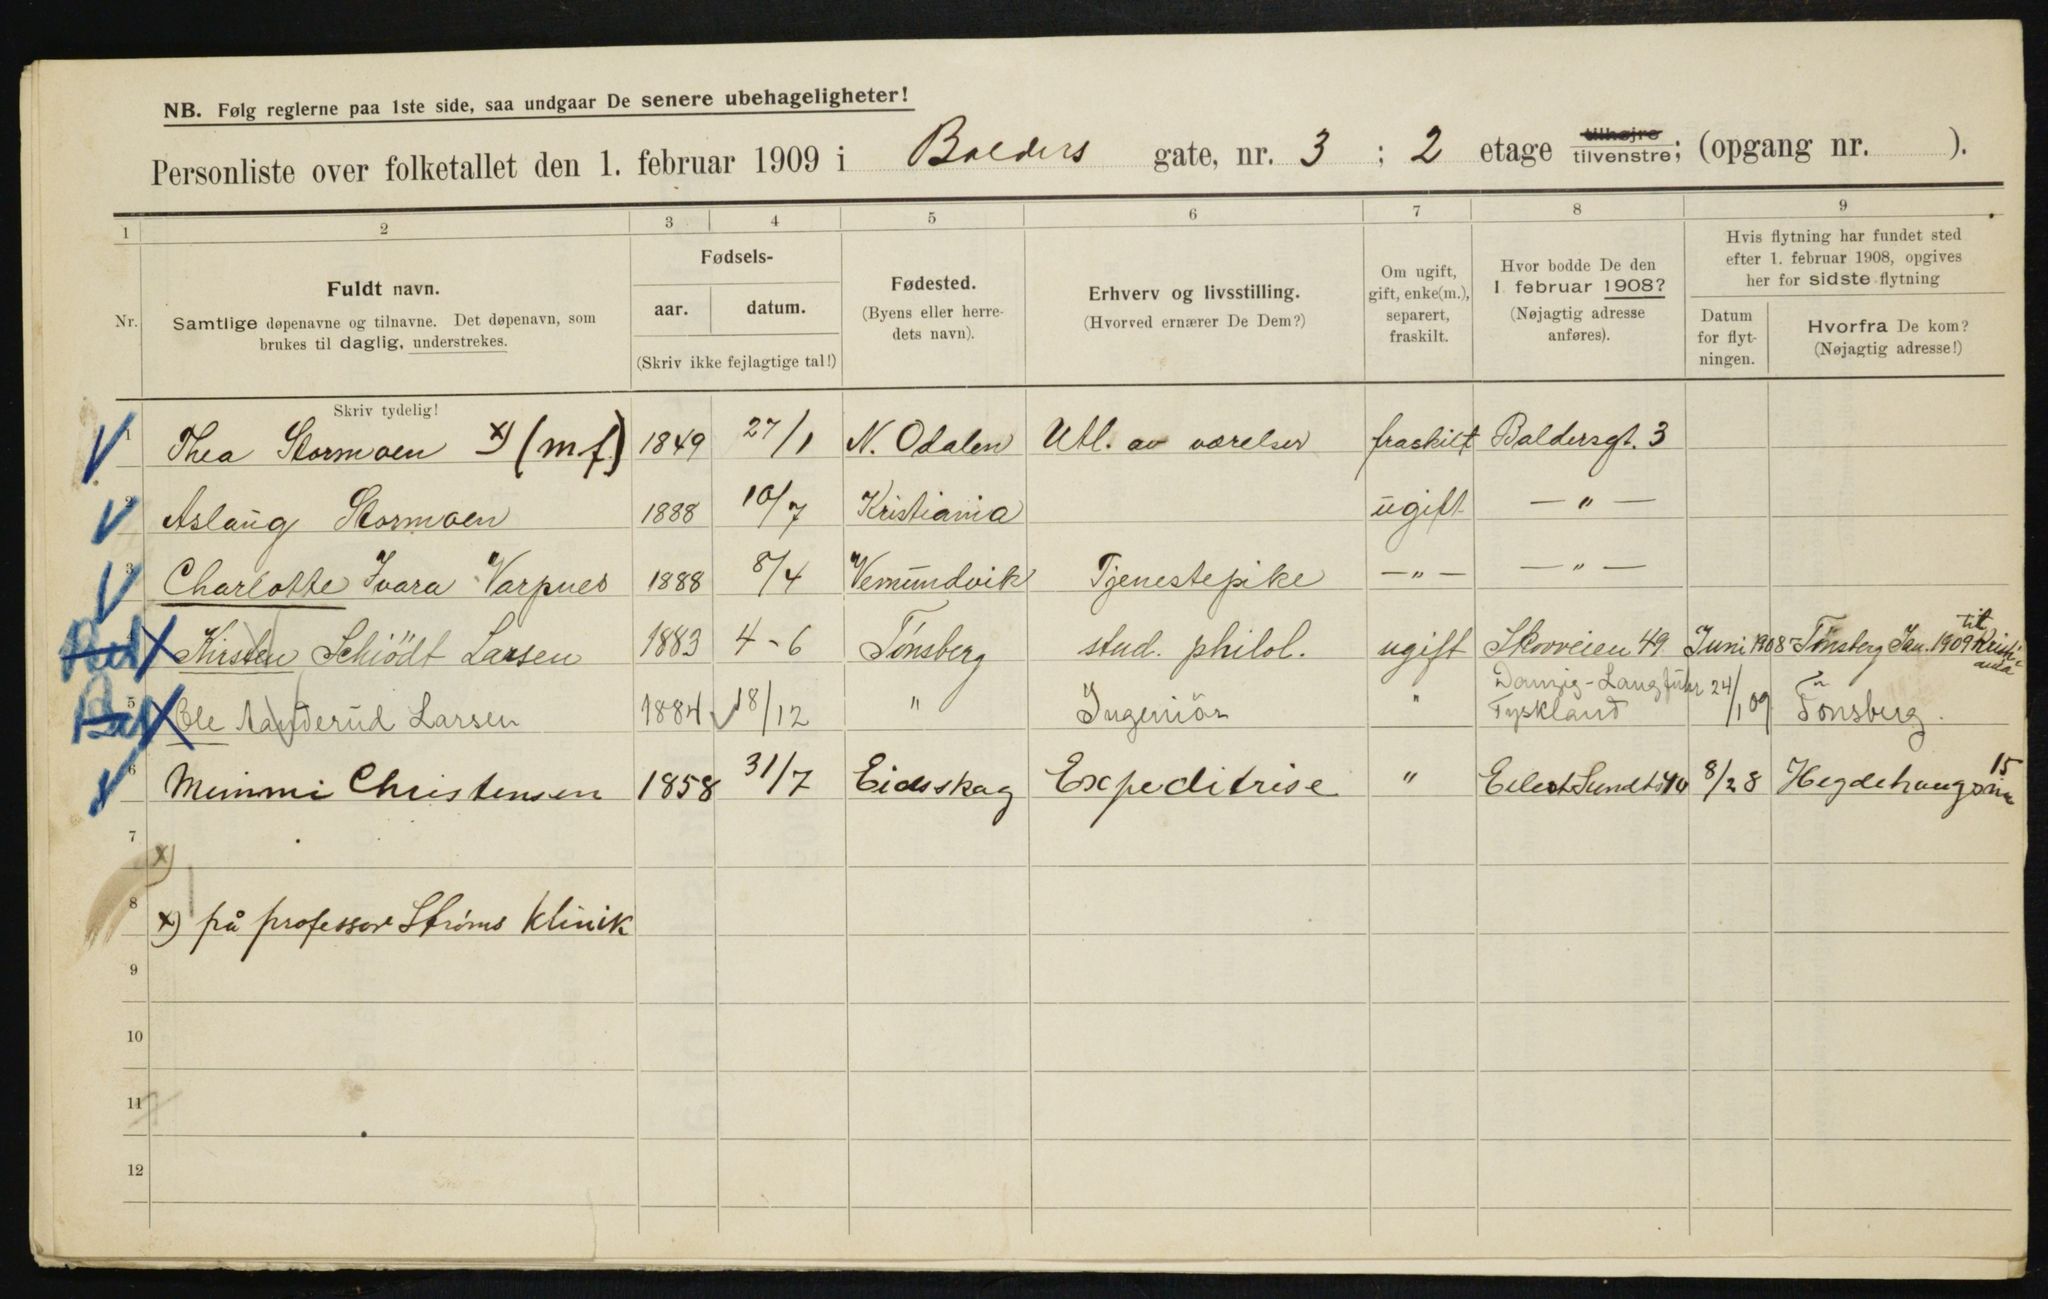 NB. Følg reglerne paa 1ste side, saa undgaar De senere ubehageligheter!
Personliste over folketallet den 1. februar 1909 i Balders gate, nr. 3 ; 2 etage tilhøjre tilvenstre; (opgang nr. ).
1 2 3 4 5 6 7 8 9
Nr.
Fuldt navn.
Samtlige døpenavne og tilnavne. Det døpenavn, som
brukes til daglig, understrekes.
Skriv tydelig!
Fødsels-
aar. datum.
(Skriv ikke fejlagtige tal!)
Fødested.
(Byens eller herre-
dets navn).
Erhverv og livsstilling.
(Hvorved ernærer De Dem?)
Om ugift,
gift, enke(m.),
separert,
fraskilt.
Hvor bodde De den
1 februar 1908?
(Nøjagtig adresse
anføres).
Hvis flytning har fundet sted
efter 1. februar 1908, opgives
her for sidste flytning
Datum
for flyt-
ningen.
Hvorfra De kom?
(Nøjagtig adresse!)
1 Thea Stormoen x) (m.f.) 1849 27/1 N. Odalen Utl. av værelser fraskilt Baldersgt. 3
2 Aslaug Stormoen 1888 10/7 Kristiania ugift — " —
3 Charlotte Ivara Varpnes 1888 8/4 Vemundvik Tjenestepike — " — — " —
4 Kirsten Schiödt Larsen 1883 4-6 Tönsberg stud. philol. ugift Skovveien 49 Juni 1908 Tönsberg Jan. 1909 til Kristiania
5 Ole Aanderud Larsen 1884 18/12 " Ingeniör " Danzig-Langfuhr Tyskland 24/1 09 Tönsberg.
6 Mimmi Christensen 1858 31/7 Eidsskog Expeditrise " Eilert Sundts 40 8/2 8 Hegdehaugsvn 15
7 x)
8 x) på professor Strøms klinik
9
10
11
12